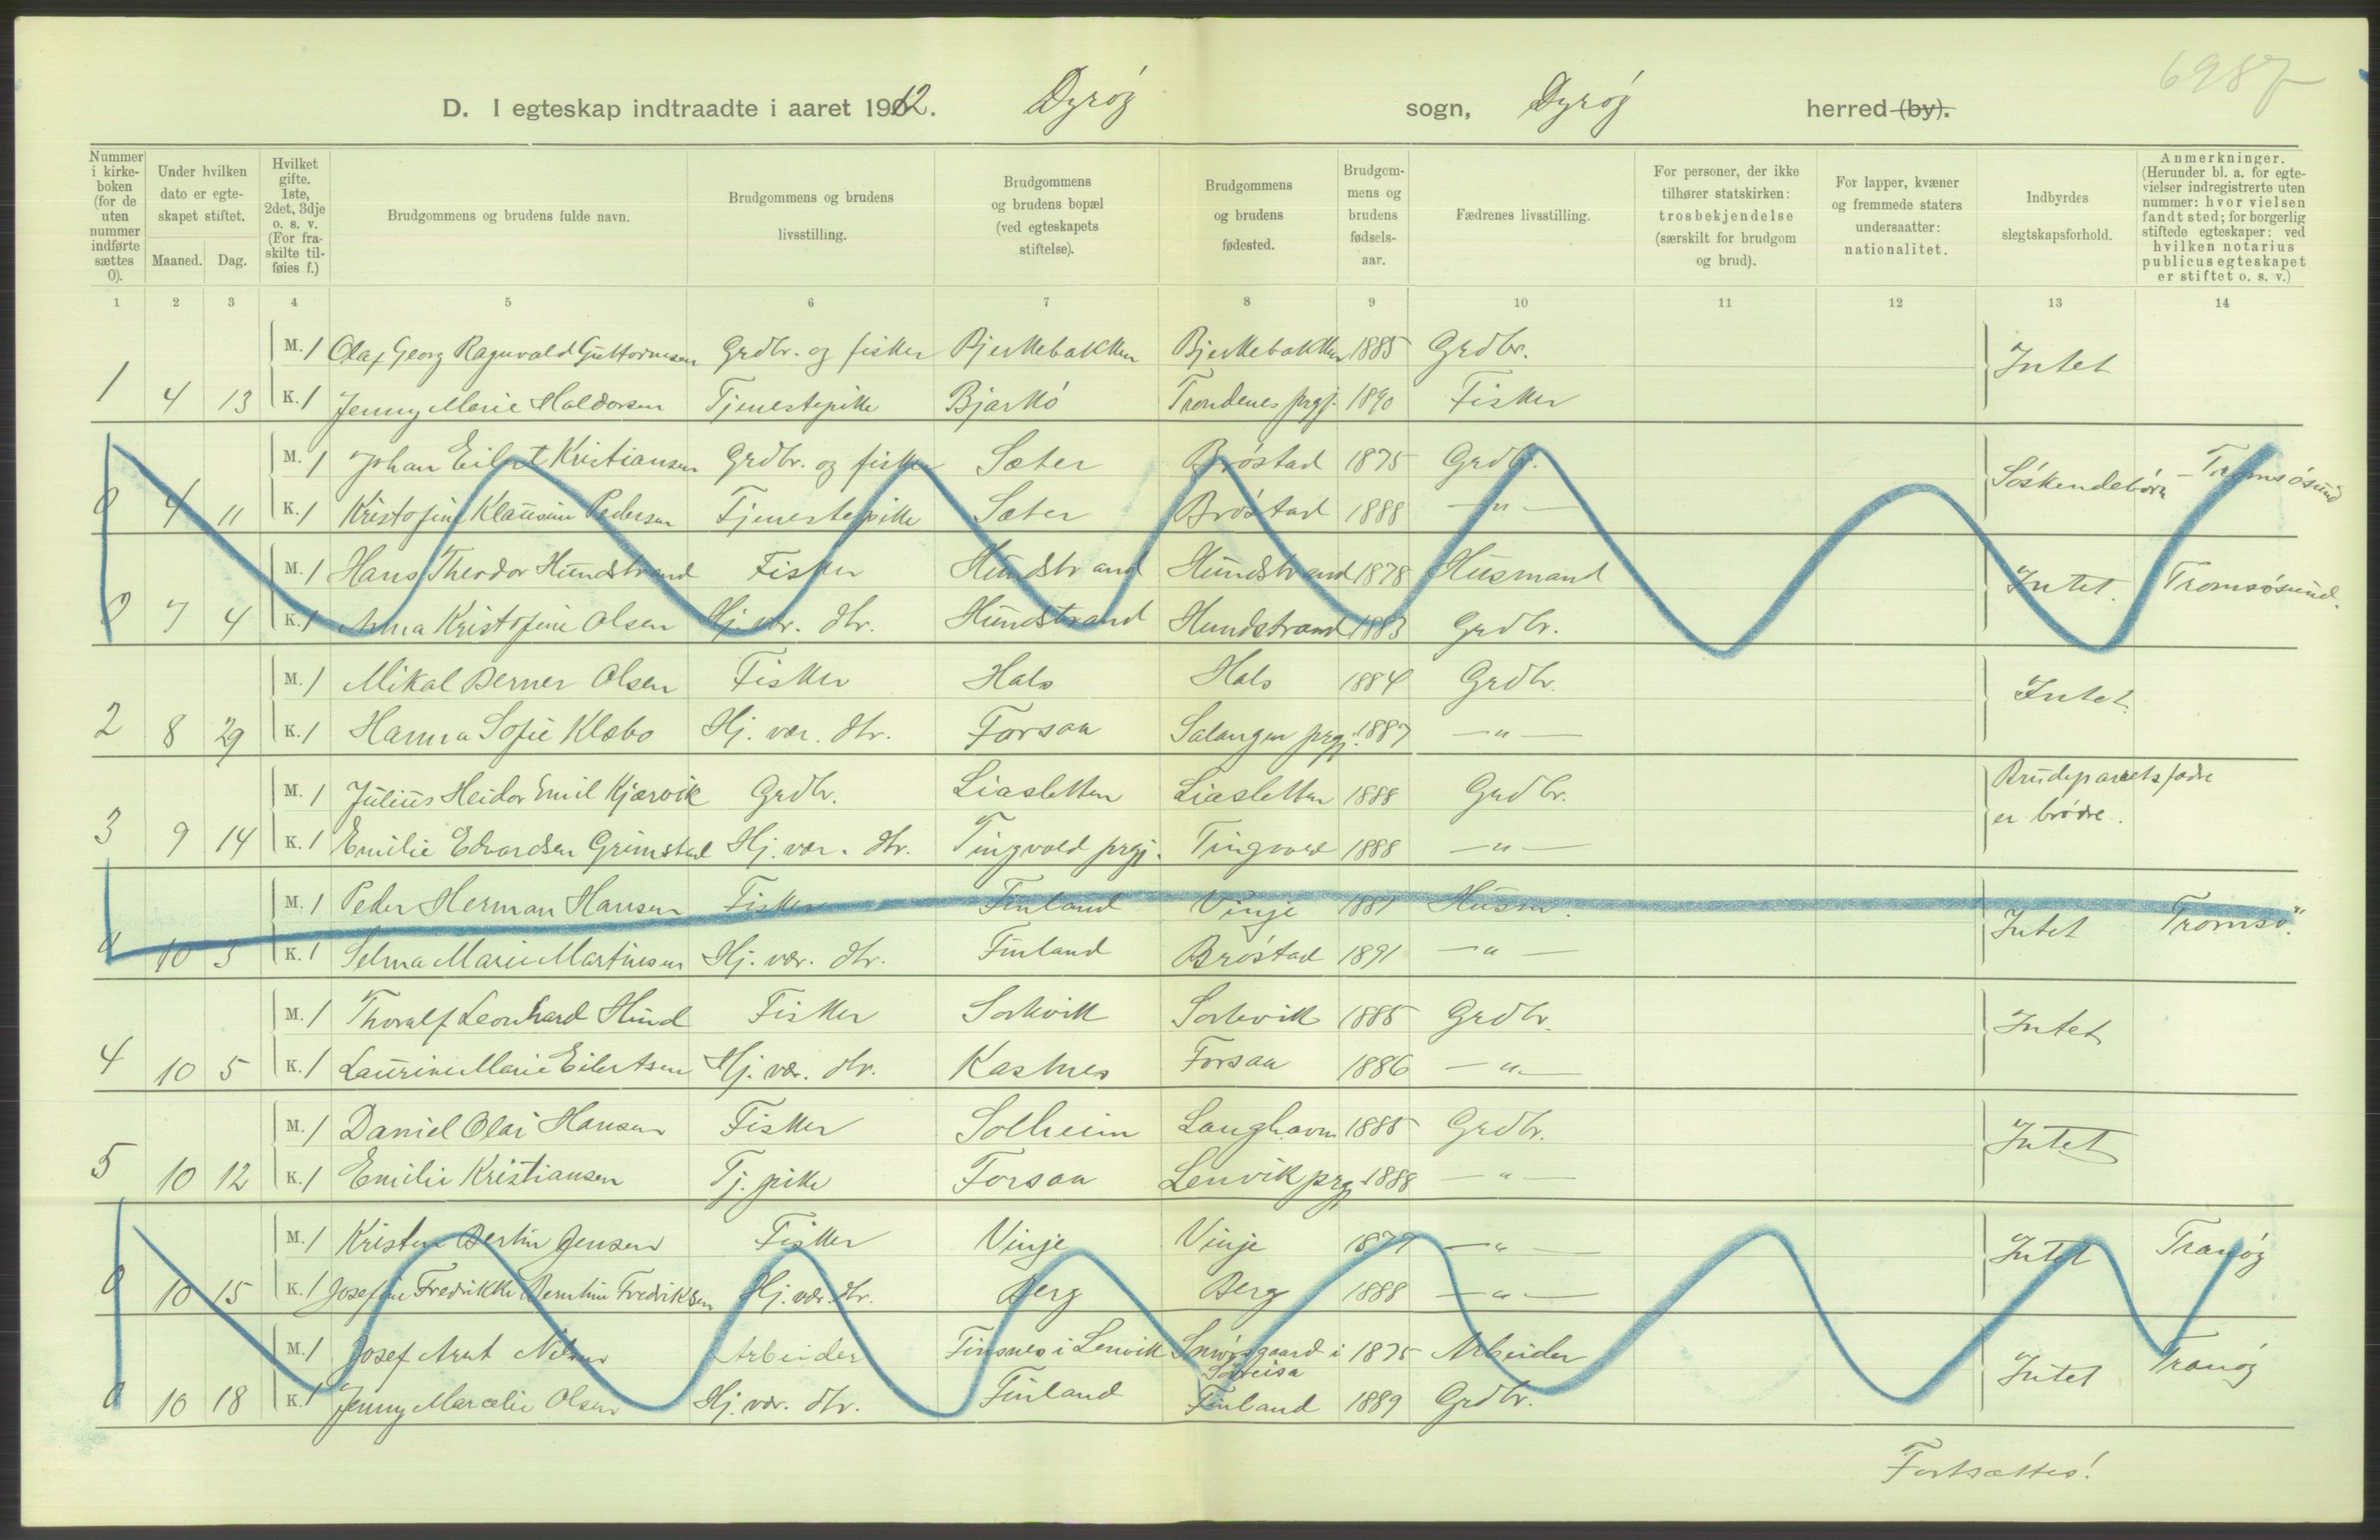 6987
D. I egteskap indtraadte i aaret 1912. Dyrøy sogn, Dyrøy herred (by).
Nummer i kirkeboken (for de uten nummer indførte sættes 0).
Under hvilken dato er egteskapet stiftet.
Maaned.
Dag.
Hvilket gifte. 1ste, 2det, 3dje o. s. v. (For fraskilte tilføies f.)
Brudgommens og brudens fulde navn.
Brudgommens og brudens livsstilling.
Brudgommens og brudens bopæl (ved egteskapets stiftelse).
Brudgommens og brudens fødested.
Brudgommens og brudens fødselsaar.
Fædrenes livsstilling.
For personer, der ikke tilhører statskirken: trosbekjendelse (særskilt for brudgom og brud).
For lapper, kvæner og fremmede staters undersaatter: nationalitet.
Indbyrdes slegtskapsforhold.
Anmerkninger. (Herunder bl. a. for egtevielser indregistrerte uten nummer: hvor vielsen fandt sted; for borgerlig stiftede egteskaper: ved hvilken notarius publicus egteskapet er stiftet o. s. v.)
1 2 3 4 5 6 7 8 9 10 11 12 13 14
M. 1 Olaf Georg Ragnvald Guttormsen Grdbr. og fisker Bjerkebakken Bjerkebakken 1885 Grdbr. Intet
1 4 13 K. 1 Jenny Marie Haldorsen Tjenestepike Bjarkö Trondenes prgj. 1890 Fisker
M. 1 Johan Eilert Kristiansen Grdbr. og fisker Sæter Bröstad 1875 Grdbr. Söskendebörn - Tromsösund
0 4 11 K. 1 Kristofine Klausine Pedersen Tjenestepike Sæter Bröstad 1888 — " —
M. 1 Hans Theodor Hundstrand Fisker Hundstrand Hundstrand 1878 Husmand Intet. Tromsösund.
0 7 4 K. 1 Anna Kristofine Olsen Hj. vær. dtr. Hundstrand Hundstrand 1883 Grdbr.
M. 1 Mikal Berner Olsen Fisker Hals Hals 1884 Grdbr. Intet.
2 8 29 K. 1 Hanna Sofie Klæbo Hj. vær. dtr. Forsaa Salangen prgj. 1887 — " —
M. 1 Julius Heidor Emil Kjærvik Grdbr. Liasletten Liasletten 1888 Grdbr. Brudeparrets fædre
3 9 14 K. 1 Emilie Edvardsen Grimstad Hj. vær. dtr. Tingvold prgj. Tingvold 1888 — " — er brödre.
M. 1 Peder Herman Hansen Fisker Finland Vinje 1881 Husm. Intet Tromsö.
0 10 3 K. 1 Selma Marie Martinsen Hj. vær. dtr. Finland Bröstad 1891 — " —
M. 1 Thoralf Leonhard Hund Fisker Sörkvik Sörkvik 1885 Grdbr. Intet
4 10 5 K. 1 Laurine Marie Eilertsen Hj. vær. dtr. Kastnes Forsaa 1886 — " —
M. 1 Daniel Olai Hansen Fisker Solheim Langhavn 1885 Grdbr. Intet
5 10 12 K. 1 Emilie Kristiansen Tj. pike Forsaa Lenvik prgj. 1888 — " —
M. 1 Kristen Bertin Jensen Fisker Vinje Vinje 1877 — " — Intet Tranöy
0 10 15 K. 1 Josefine Fredrikke Berntine Fredriksen Hj. vær. dtr. Berg Berg 1888 — " —
M. 1 Josef Arnt Nilsen Arbeider Finsnes i Lenvik i Sörreisa 1875 Arbeider Intet Tranöy
0 10 18 K. 1 Jenny Marcelie Olsen Hj. vær. dtr. Finland Finland 1889 Grdbr.
Fortsættes!